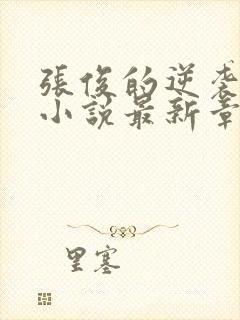 張俊的逆袭
小說最新章
里塞